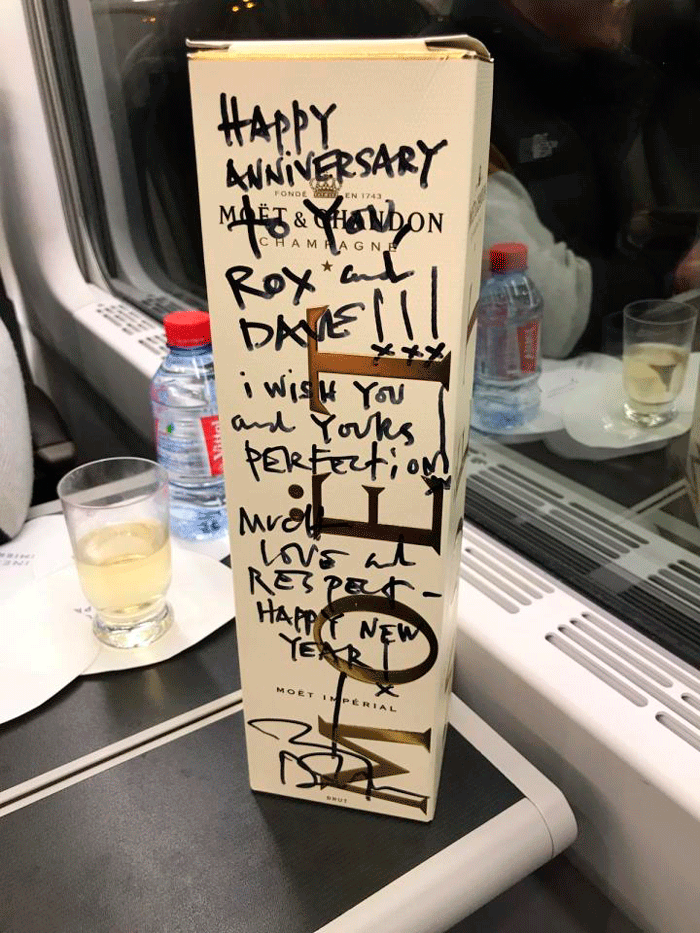 HAPPY
ANNIVERSARY
FONDÉ EN 1743
MOËT & CHANDON
to You,
CHAMPAGNE
ROX and
DAVE!!!
xxx
i WISH YOU
and YOURS
PERFECtiON!
x
MUCH
LOVE and
RESPECt -
HAPPY NEW
YEAR!
x
MOËT IMPÉRIAL
BRUT
MOËT
Vittel